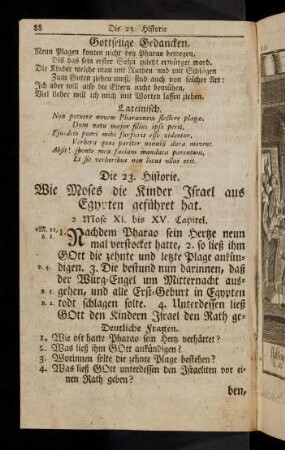 88 Die 23. Historie
Gottselige Gedancken.
Neun Plagen konten nicht den Pharao bewegen,
Bis das sein erster Sohn zuletzt erwürget ward.
Die Kinder welche man mit Ruthen und mit Schlägen
Zum Guten ziehen muß, sind auch von solcher Art:
Ich aber will also die Eltern nicht bemühen,
Viel lieber will ich mich mit Worten lassen ziehen.
Lateinisch.
Non potuere novem Pharaonem flectere plagæ,
Dum natu major filius ipse perit.
Ejusdem pueri mihi furfuris esse videntur,
Verbera quos pariter nonnisi dura movent.
Absit! sponte mea faciam mandata parentum,
Et sic verberibus non locus ullus erit.
Die 23. Historie.
Wie Moses die Kinder Israel aus
Egypten geführet hat.
2 Mose XI. bis XV. Capitel.
1. Nachdem Pharao sein Hertze neun
mal verstocket hatte, 2. so ließ ihm
GOtt die zehnte und letzte Plage ankün-
digen. 3. Die bestund nun darinnen, daß
der Würg-Engel um Mitternacht aus-
gehen, und alle Erst-Geburt in Egypten
todt schlagen solte. 4. Unterdessen ließ
GOtt den Kindern Israel den Rath ge-
Deutliche Fragen.
1. Wie oft hatte Pharao sein Hertz verhärtet?
2. Was ließ ihm GOtt ankündigen?
3. Worinnen solte die zehnte Plage bestehen?
4. Was ließ GOtt unterdessen den Israeliten vor ei-
nen Rath geben?
ben,